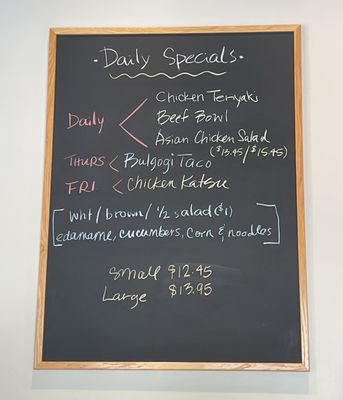 ·Daily Specials·
Chicken Teriyaki
Daily < Beef Bowl
Asian Chicken Salad
($13.45/$15.45)
THURS < Bulgogi Taco
FRI < Chicken Katsu
[wht/brown/½ salad($1)
edamame, cucumbers, corn & noodles]
Small $12.45
Large $13.95